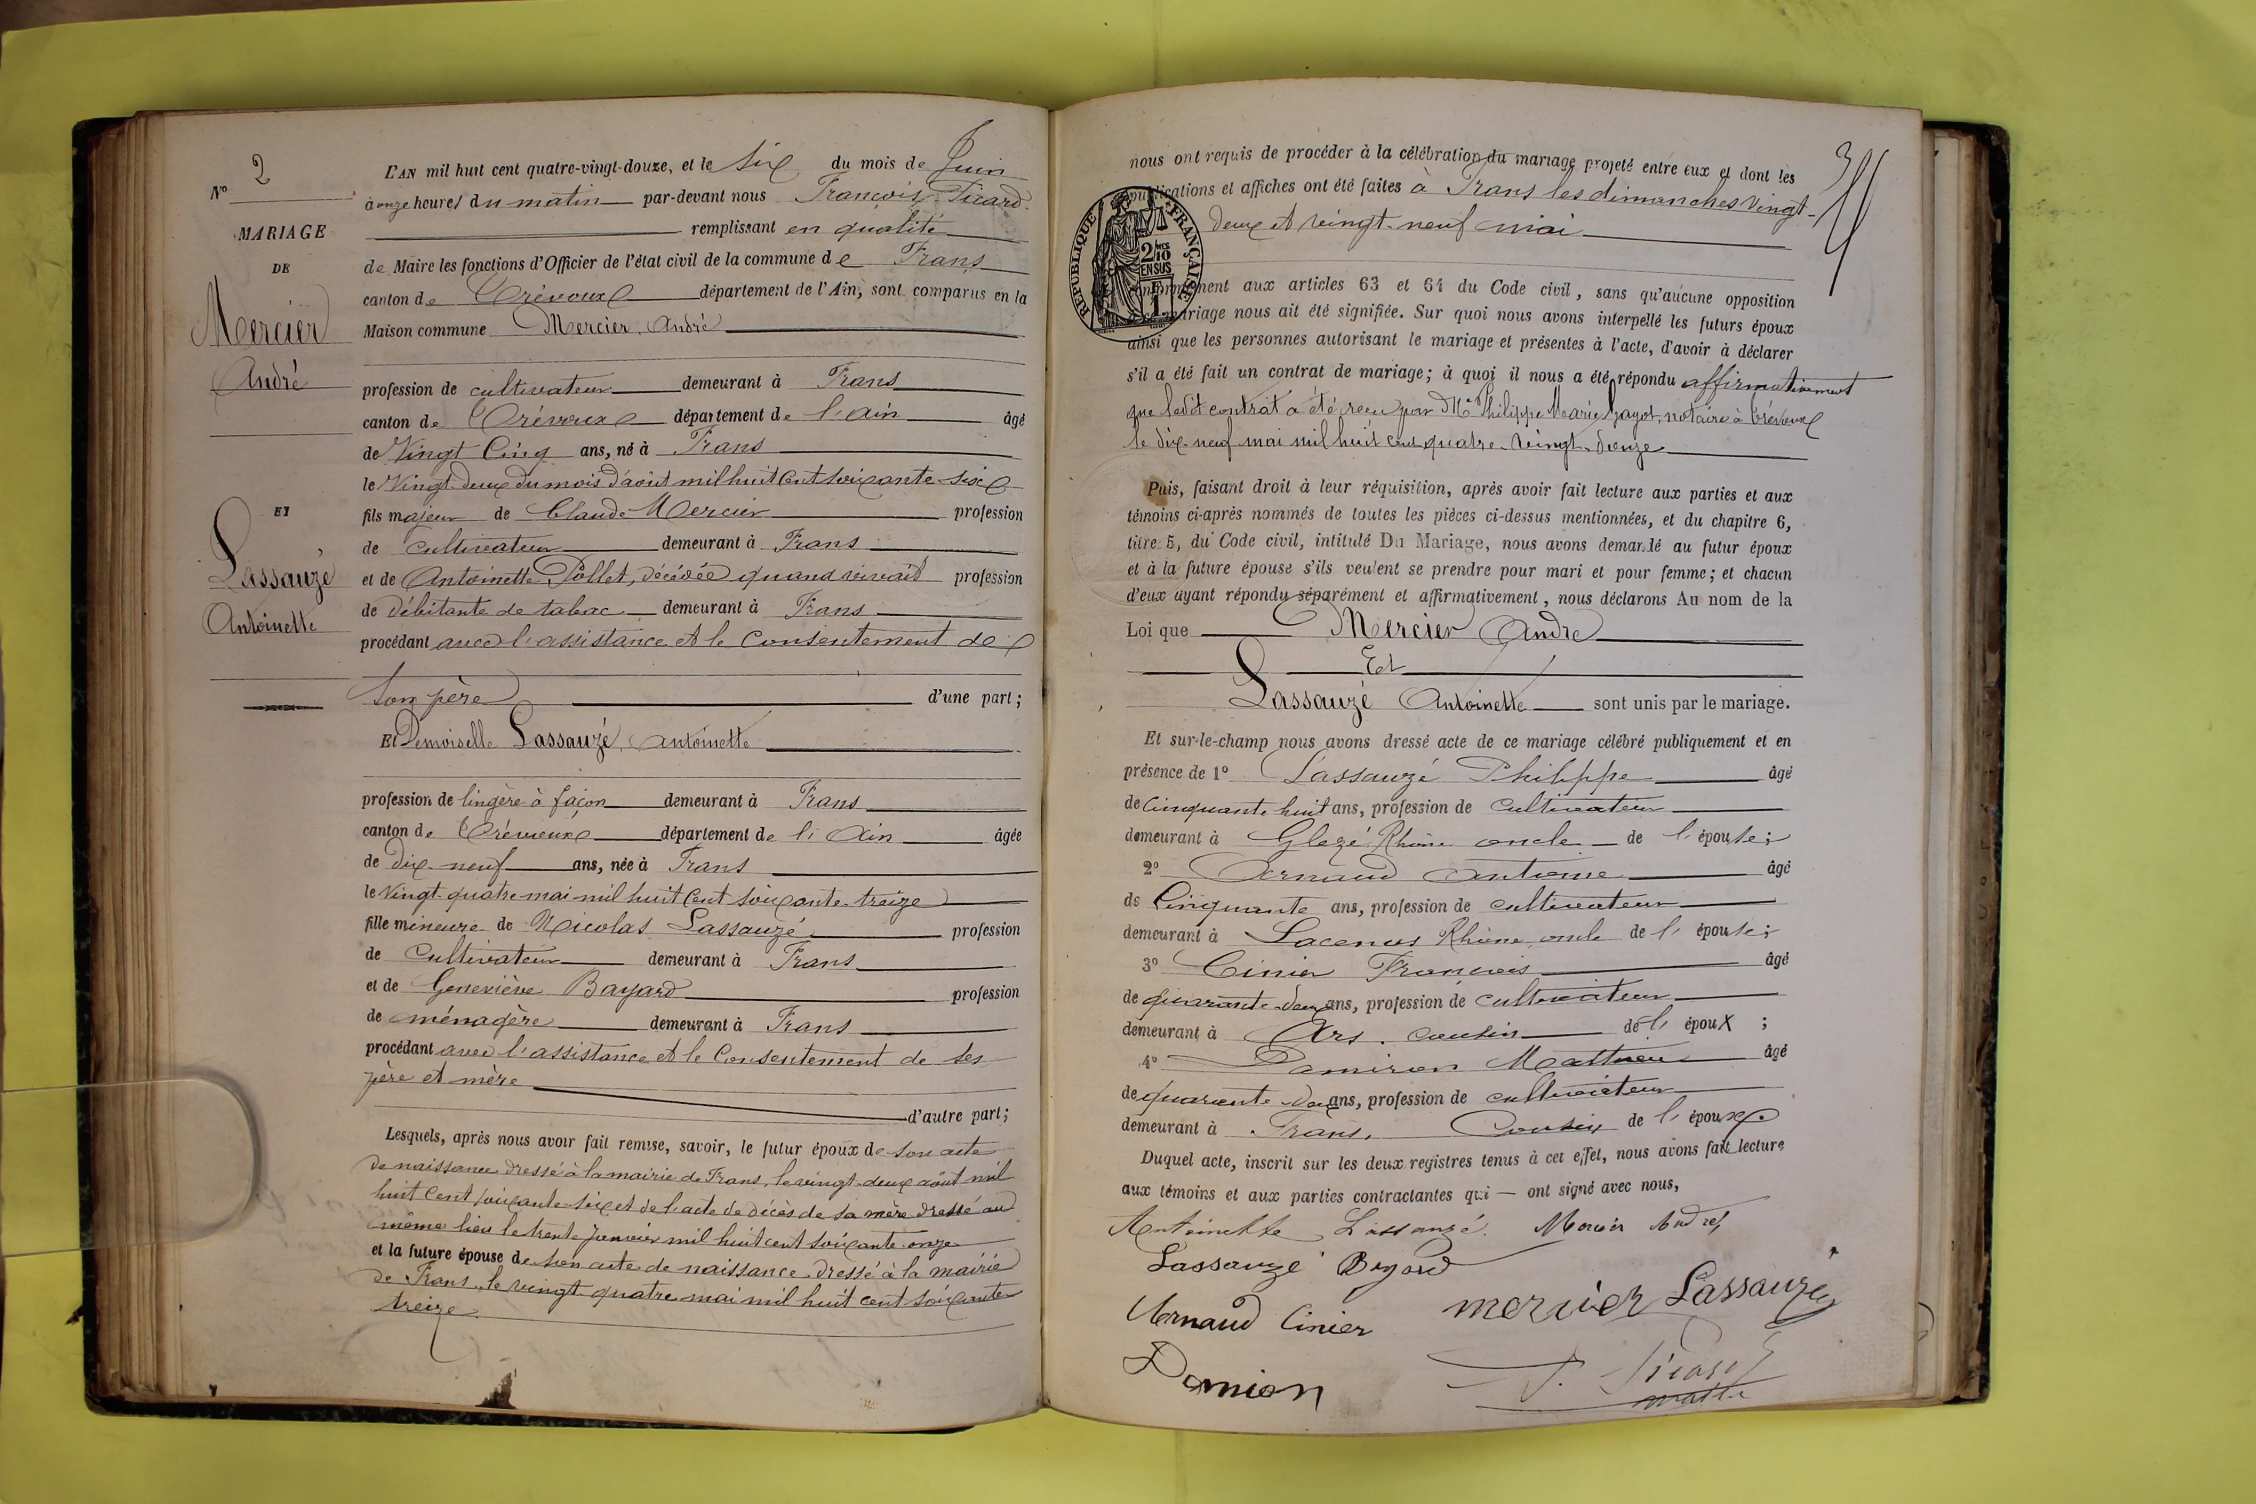 N° 2
MARIAGE
DE
Mercier
André
ET
Lassauzé
Antoinette
L'AN mil huit cent quatre-vingt-douze, et le six du mois de Juin
à onze heures du matin par-devant nous François Picard
remplissant en qualité
de Maire les fonctions d'Officier de l'état civil de la commune de Frans
canton de Trévoux département de l'Ain, sont comparus en la
Maison commune Mercier, André
profession de cultivateur demeurant à Frans
canton de Trévoux département de l'Ain âgé
de Vingt Cinq ans, né à Frans
le Vingt-deux du mois d'août mil huit Cent soixante-six
fils majeur de Claude Mercier profession
de Cultivateur demeurant à Frans
et de Antoinette Pollet, décédée quand vivait profession
de débitante de tabac demeurant à Frans
procédant avec l'assistance et le Consentement de
son père d'une part;
Et Demoiselle Lassauzé, Antoinette
profession de lingère à façon demeurant à Frans
canton de Trévoux département de l'Ain âgée
de Dix-neuf ans, née à Frans
le Vingt-quatre mai mil huit Cent soixante-treize
fille mineure de Nicolas Lassauzé profession
de Cultivateur demeurant à Frans
et de Geneviève Bayard profession
de ménagère demeurant à Frans
procédant avec l'assistance et le Consentement de ses
père et mère
d'autre part;
Lesquels, après nous avoir fait remise, savoir, le futur époux de son acte
de naissance dressé à la mairie de Frans, le vingt-deux août mil
huit Cent soixante-six et de l'acte de décès de sa mère dressé au
même lieu le trente Janvier mil huit cent soixante-onze
et la future épouse de son acte de naissance dressé à la mairie
de Frans, le vingt-quatre mai mil huit cent soixante
treize.
nous ont requis de procéder à la célébration du mariage projeté entre eux et dont les
publications et affiches ont été faites à Frans les dimanches vingt-
deux et vingt-neuf mai
RÉPUBLIQUE FRANÇAISE
2/10 EN SUS
conformément aux articles 63 et 64 du Code civil, sans qu'aucune opposition
mariage nous ait été signifiée. Sur quoi nous avons interpellé les futurs époux
ainsi que les personnes autorisant le mariage et présentes à l'acte, d'avoir à déclarer
s'il a été fait un contrat de mariage; à quoi il nous a été répondu affirmativement
que ledit contrat a été reçu par Me Philippe Marie notaire à Trévoux
le dix-neuf mai mil huit cent quatre-vingt-douze
Puis, faisant droit à leur réquisition, après avoir fait lecture aux parties et aux
témoins ci-après nommés de toutes les pièces ci-dessus mentionnées, et du chapitre 6,
titre 5, du Code civil, intitulé Du Mariage, nous avons demandé au futur époux
et à la future épouse s'ils veulent se prendre pour mari et pour femme; et chacun
d'eux ayant répondu séparément et affirmativement, nous déclarons Au nom de la
Loi que Mercier André
Et
Lassauzé Antoinette sont unis par le mariage.
Et sur-le-champ nous avons dressé acte de ce mariage célébré publiquement et en
présence de 1° Lassauzé Philippe âgé
de Cinquante huit ans, profession de Cultivateur
demeurant à Glezé Rhône oncle de l'épouse;
2° Arnaud Antoine âgé
de Cinquante ans, profession de cultivateur
demeurant à Lacenas Rhône, oncle de l'épouse;
3° Cinier François âgé
de quarante-deux ans, profession de cultivateur
demeurant à Ars. cousin de l'époux;
4° Damiron Mathieu âgé
de quarante-deux ans, profession de cultivateur
demeurant à Frans. Cousin de l'époux.
Duquel acte, inscrit sur les deux registres tenus à cet effet, nous avons fait lecture
aux témoins et aux parties contractantes qui — ont signé avec nous,
Antoinette Lassauzé. Mercier André,
Lassauzé Bayard
mercier Lassauzé
Arnaud Cinier
Damion
F. Picard
maire